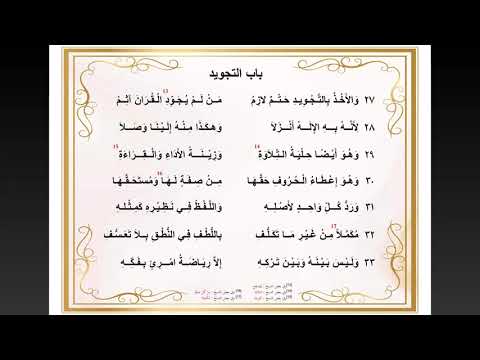 باب التجويد
٢٧ وَالأَخْذُ بِالتَّجْوِيدِ حَتْمٌ لازِمُ مَنْ لَمْ يُجَوِّدِ الْقُرَانَ آثِمُ
٢٨ لأَنَّهُ بِهِ الإِلَهُ أَنْزَلاَ وَهَكَذَا مِنْهُ إِلَيْنَا وَصَلاَ
٢٩ وَهُوَ أَيْضًا حِلْيَةُ التِّلاَوَةِ وَزِينَةُ الأَدَاءِ وَالْقِرَاءَةِ
٣٠ وَهُوَ إِعْطَاءُ الْحُرُوفِ حَقَّهَا مِنْ صِفَةٍ لَهَا وَمُسْتَحَقَّهَا
٣١ وَرَدُّ كُلِّ وَاحِدٍ لأَصْلِهِ وَاللَّفْظُ فِي نَظِيرِهِ كَمِثْلِهِ
٣٢ مُكَمَّلاً مِنْ غَيْرِ مَا تَكَلُّفِ بِاللُّطْفِ فِي النُّطْقِ بِلاَ تَعَسُّفِ
٣٣ وَلَيْسَ بَيْنَهُ وَبَيْنَ تَرْكِهِ إِلاَّ رِيَاضَةُ امْرِئٍ بِفَكِّهِ